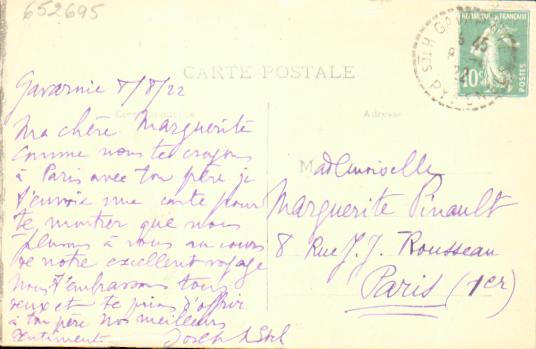 652695
REPUBLIQUE FRANÇAISE
10c
POSTES
GAVARNIE
HTES
PYRENEES
CARTE POSTALE
Correspondance
Adresse
Gavarnie 8/8/22
Ma chère Marguerite
Comme nous te croyons
à Paris avec ton père je
t'envoie une carte pour
te montrer que nous
pensons à vous au cours
de notre excellent voyage
Nous t'embrassons tous
deux et te prions d'offrir
à ton père nos meilleurs
sentiments Joseph
Mademoiselle
Marguerite Pinault
8 Rue J. J. Rousseau
Paris (1er)